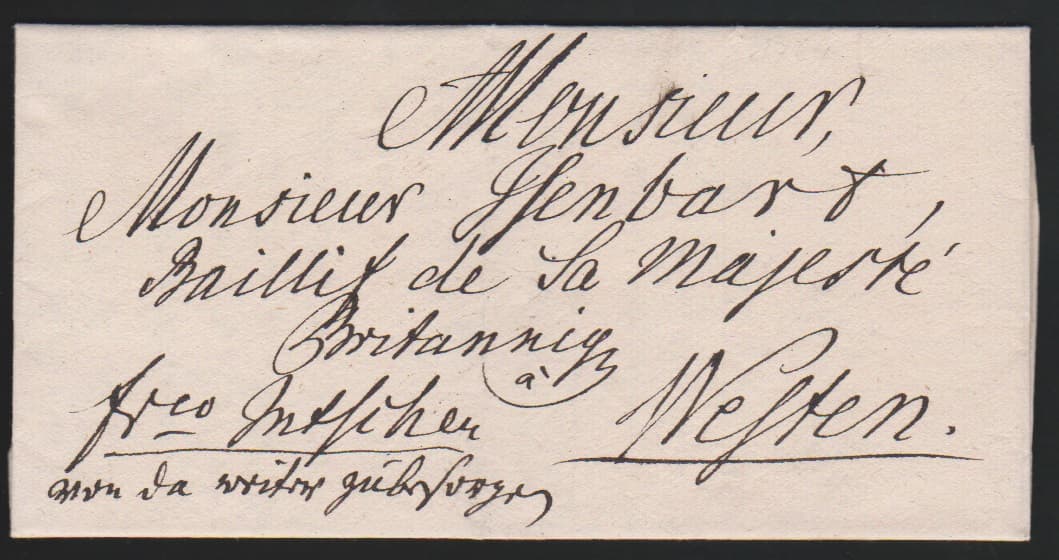 Monsieur,
Monsieur Isenbart,
Baillif de Sa Majesté
Britanniq
à Westen.
frco Intschen
von da weiter zu besorgen